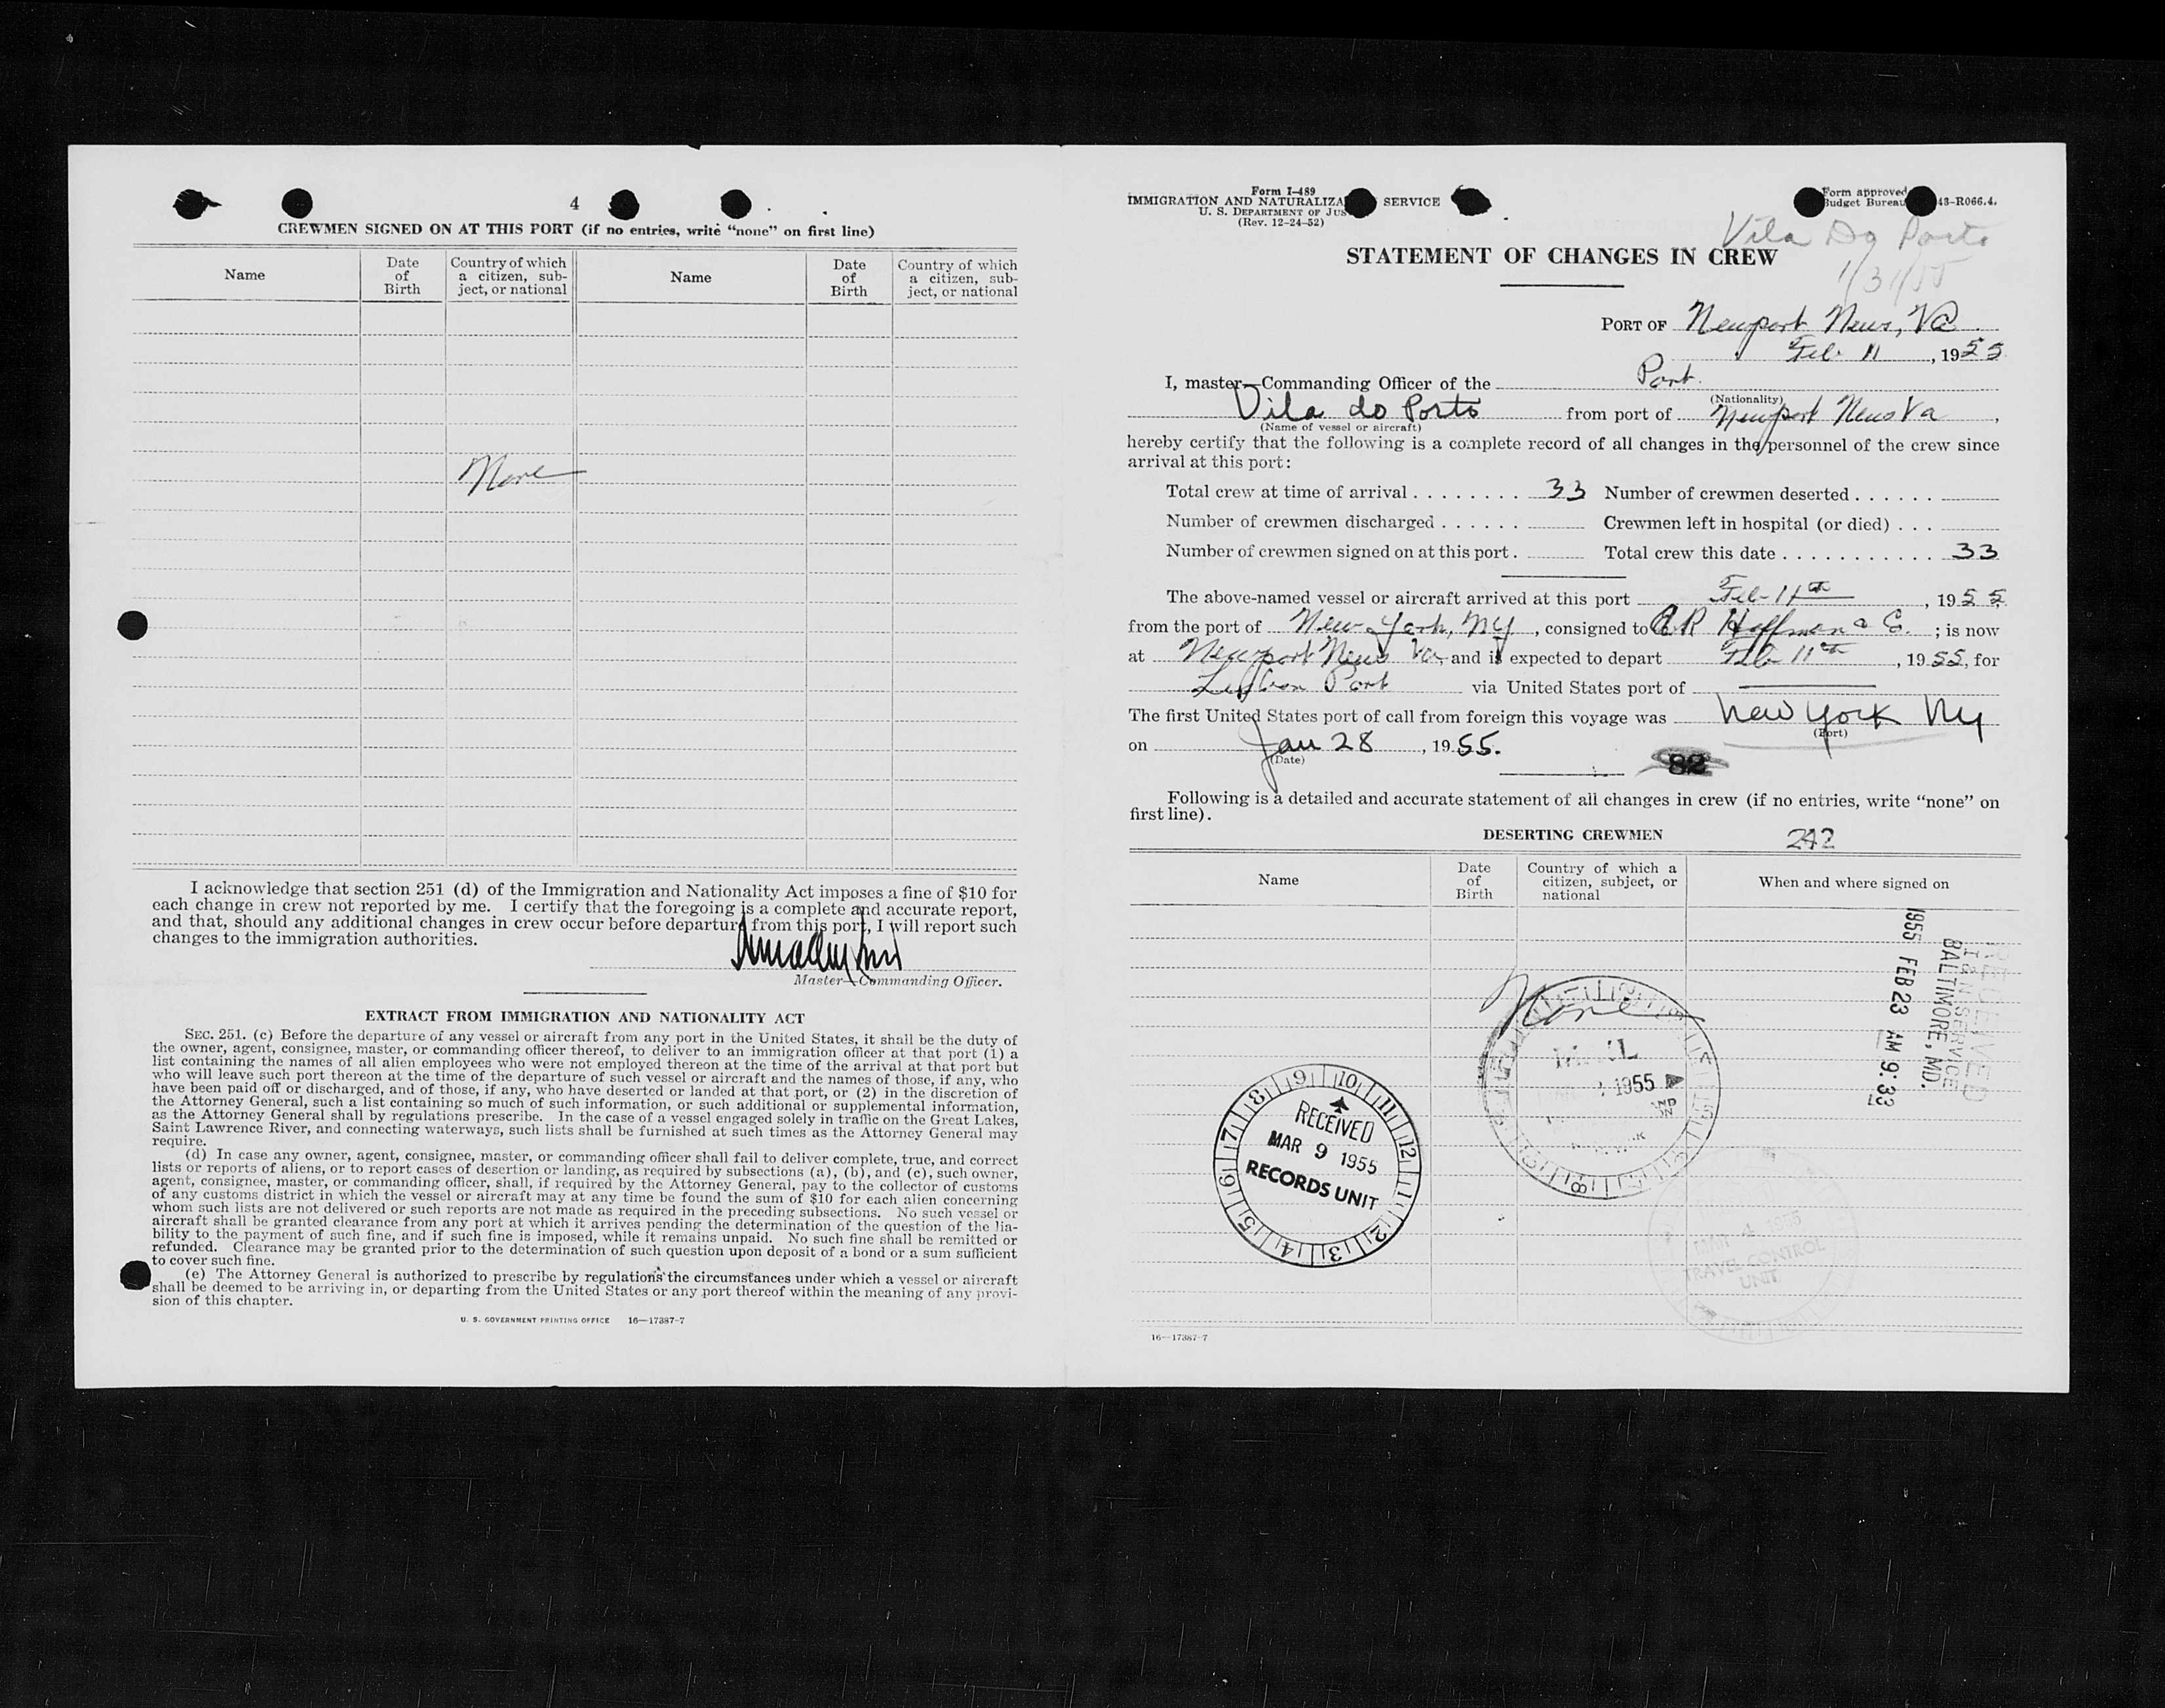 4
CREWMEN SIGNED ON AT THIS PORT (if no entries, write "none" on first line)
Name
Date of Birth
Country of which a citizen, sub-ject, or national
Name
Date of Birth
Country of which a citizen, sub-ject, or national
None
I acknowledge that section 251 (d) of the Immigration and Nationality Act imposes a fine of $10 for
each change in crew not reported by me. I certify that the foregoing is a complete and accurate report,
and that, should any additional changes in crew occur before departure from this port, I will report such
changes to the immigration authorities.
Master—Commanding Officer.
EXTRACT FROM IMMIGRATION AND NATIONALITY ACT
SEC. 251. (c) Before the departure of any vessel or aircraft from any port in the United States, it shall be the duty of
the owner, agent, consignee, master, or commanding officer thereof, to deliver to an immigration officer at that port (1) a
list containing the names of all alien employees who were not employed thereon at the time of the arrival at that port but
who will leave such port thereon at the time of the departure of such vessel or aircraft and the names of those, if any, who
have been paid off or discharged, and of those, if any, who have deserted or landed at that port, or (2) in the discretion of
the Attorney General, such a list containing so much of such information, or such additional or supplemental information,
as the Attorney General shall by regulations prescribe. In the case of a vessel engaged solely in traffic on the Great Lakes,
Saint Lawrence River, and connecting waterways, such lists shall be furnished at such times as the Attorney General may
require.
(d) In case any owner, agent, consignee, master, or commanding officer shall fail to deliver complete, true, and correct
lists or reports of aliens, or to report cases of desertion or landing, as required by subsections (a), (b), and (c), such owner,
agent, consignee, master, or commanding officer, shall, if required by the Attorney General, pay to the collector of customs
of any customs district in which the vessel or aircraft may at any time be found the sum of $10 for each alien concerning
whom such lists are not delivered or such reports are not made as required in the preceding subsections. No such vessel or
aircraft shall be granted clearance from any port at which it arrives pending the determination of the question of the lia-
bility to the payment of such fine, and if such fine is imposed, while it remains unpaid. No such fine shall be remitted or
refunded. Clearance may be granted prior to the determination of such question upon deposit of a bond or a sum sufficient
to cover such fine.
(e) The Attorney General is authorized to prescribe by regulations the circumstances under which a vessel or aircraft
shall be deemed to be arriving in, or departing from the United States or any port thereof within the meaning of any provi-
sion of this chapter.
U. S. GOVERNMENT PRINTING OFFICE 16—17387-7
Form I-489
IMMIGRATION AND NATURALIZA SERVICE
U. S. DEPARTMENT OF JUS
(Rev. 12-24-52)
Form approved
Budget Bureau 43-R066.4.
Vila Do Porto
1/31/55
STATEMENT OF CHANGES IN CREW
PORT OF Newport News, Va
Feb. 11, 1955
I, master—Commanding Officer of the Port.
(Nationality)
Vila do Porto from port of Newport News Va,
(Name of vessel or aircraft)
hereby certify that the following is a complete record of all changes in the personnel of the crew since
arrival at this port:
Total crew at time of arrival 33 Number of crewmen deserted
Number of crewmen discharged Crewmen left in hospital (or died)
Number of crewmen signed on at this port. Total crew this date 33
The above-named vessel or aircraft arrived at this port Feb-11th, 1955
from the port of New York, NY, consigned to R Hoffman & Co.; is now
at Newport News Va, and is expected to depart Feb 11th, 1955, for
Lisbon Port via United States port of
The first United States port of call from foreign this voyage was New York Ny
(Port)
on Jan 28, 1955.
(Date)
82
Following is a detailed and accurate statement of all changes in crew (if no entries, write "none" on
first line).
DESERTING CREWMEN
242
Name
Date of Birth
Country of which a citizen, subject, or national
When and where signed on
None
RECEIVED
I & N SERVICE
BALTIMORE, MD.
1955 FEB 23 AM 9:33
1955
RECEIVED
MAR 9 1955
RECORDS UNIT
4 1955
TRAVEL CONTROL
UNIT
16—17387-7